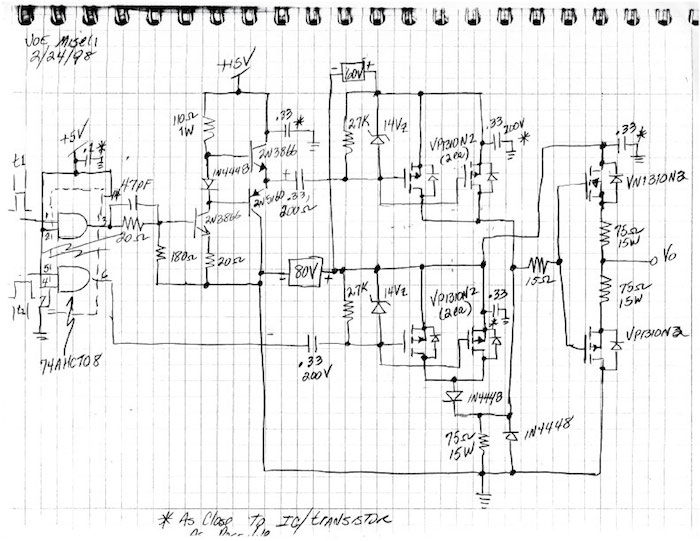 JOE Miseli
2/24/98
+15V
+5V
.1 *
t1
47pF
20Ω
1
2
3
4
5
6
7
t2
74AHCT08
180Ω
110Ω
1W
1N4448
2N3866
2N3866
2N5160
20Ω
.33 *
.33
200Ω
- 60V +
27K
14Vz
VP1310N2
(2ea)
.33
200V
*
- 80V +
27K
14Vz
VP1310N2
(2ea)
.33
*
.33
200V
1N4448
75Ω
15W
1N4448
15Ω
.33
*
VN1310N3
75Ω
15W
Vo
75Ω
15W
VP1310N3
* As Close To IC/transistor